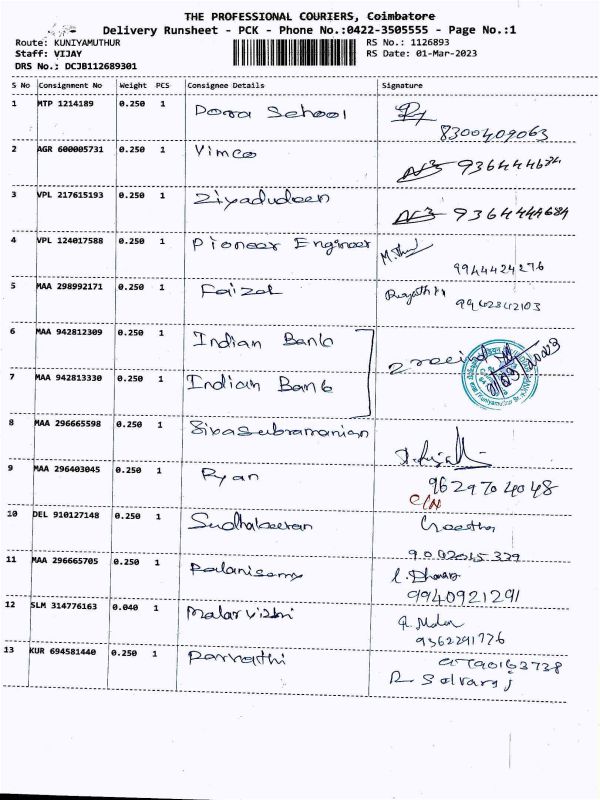 THE PROFESSIONAL COURIERS, Coimbatore
Delivery Runsheet - PCK - Phone No.:0422-3505555 - Page No.:1
Route: KUNIYAMUTHUR RS No.: 1126893
Staff: VIJAY RS Date: 01-Mar-2023
DRS No.: DCJB112689301
S No Consignment No Weight PCS Consignee Details Signature
1 MTP 1214189 0.250 1 Dora School
8300409063
2 AGR 600005731 0.250 1 Vimco 9364444684
3 VPL 217615193 0.250 1 Ziyadudeen 9364444684
4 VPL 124017588 0.250 1 Pioneer Engineer
9944424276
5 MAA 298992171 0.250 1 Faizal
9942342103
6 MAA 942812309 0.250 1 Indian Bank
7 MAA 942813330 0.250 1 Indian Bank
8 MAA 296665598 0.250 1 Sivasubramanian
9 MAA 296403045 0.250 1 Ryan 9629704048
10 DEL 910127148 0.250 1 Sudhakaran
11 MAA 296665705 0.250 1 Palanisamy
9940921291
12 SLM 314776163 0.040 1 Malarvizhi
9362291776
13 KUR 694581440 0.250 1 Parvathi
R Selvaraj